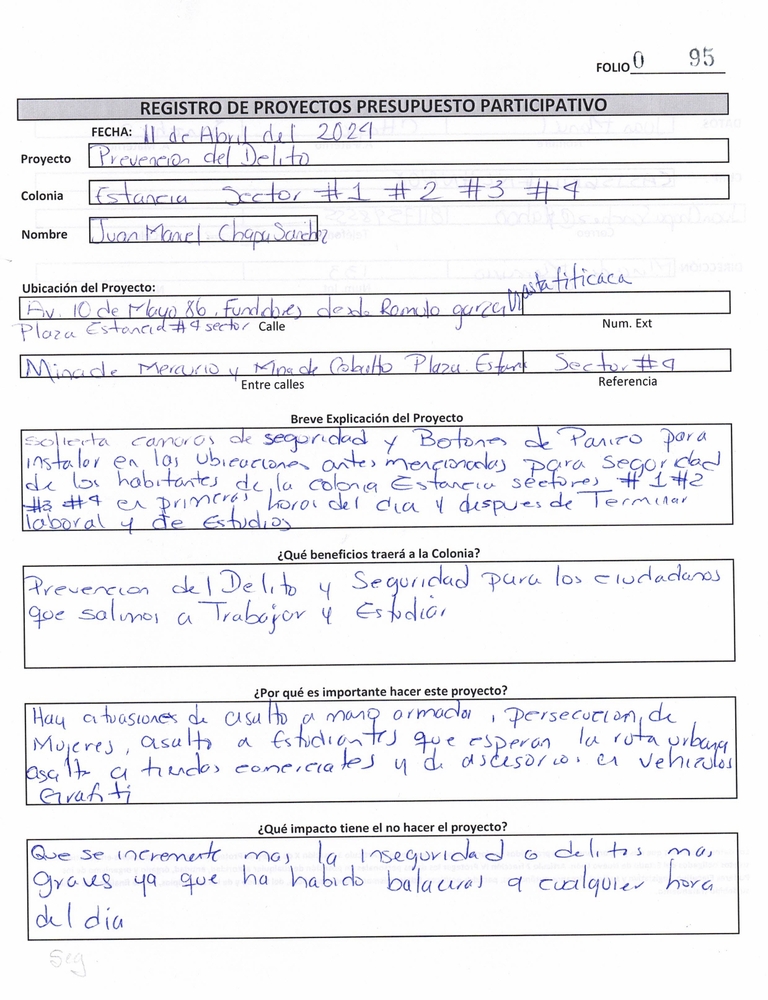 FOLIO 0 95
REGISTRO DE PROYECTOS PRESUPUESTO PARTICIPATIVO
FECHA: 11 de Abril del 2024
Proyecto Prevencion del Delito
Colonia Estancia Sector #1 #2 #3 #4
Nombre Juan Manuel Chapa Sanchez
Ubicación del Proyecto:
Av. 10 de Mayo 86. Fundadores desde Romulo garza hasta titicaca
Plaza Estancia #4 sector Calle Num. Ext
Mina de Mercurio y Mina de Cobalto Plaza Estan Sector #4
Entre calles Referencia
Breve Explicación del Proyecto
solicita camaras de seguridad y Botones de Panico para
instalar en las ubicaciones antes mencionadas para seguridad
de los habitantes de la colonia Estancia sectores #1 #2
#3 #4 en primeras horas del dia y despues de Terminar
laboral y de Estudios
¿Qué beneficios traerá a la Colonia?
Prevencion del Delito y Seguridad para los ciudadanos
que salimos a Trabajar y Estudiar
¿Por qué es importante hacer este proyecto?
Hay situasiones de asalto a mano armada, persecucion de
Mujeres, asalto a Estudiantes que esperan la ruta urbana
asalto a tiendas comerciales y de accesorios en vehiculos
Grafiti
¿Qué impacto tiene el no hacer el proyecto?
Que se incremente mas la inseguridad o delitos mas
graves ya que ha habido balaceras a cualquier hora
del dia
Seg